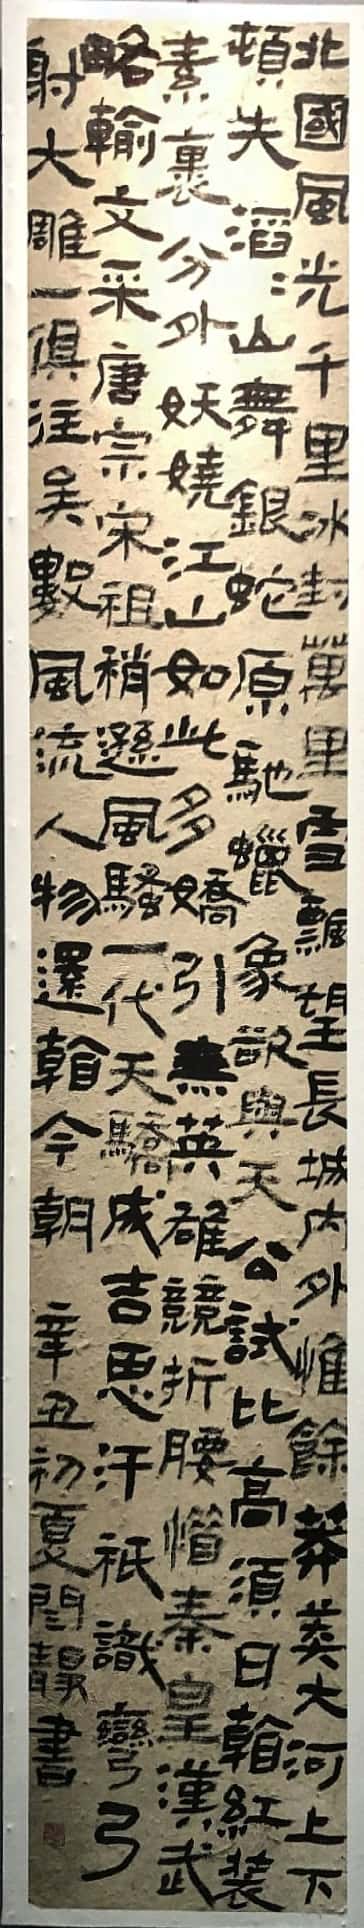 北國風光千里冰封萬里雪飄望長城內外惟餘莽莽大河上下
頓失滔〻山舞銀蛇原馳蠟象欲與天公試比高須日看紅裝
素裹分外妖嬈江山如此多嬌引無英雄競折腰惜秦皇漢武
略輸文采唐宗宋祖稍遜風騷一代天驕成吉思汗祇識彎弓
射大雕一俱往矣數風流人物還看今朝 辛丑初夏閆書